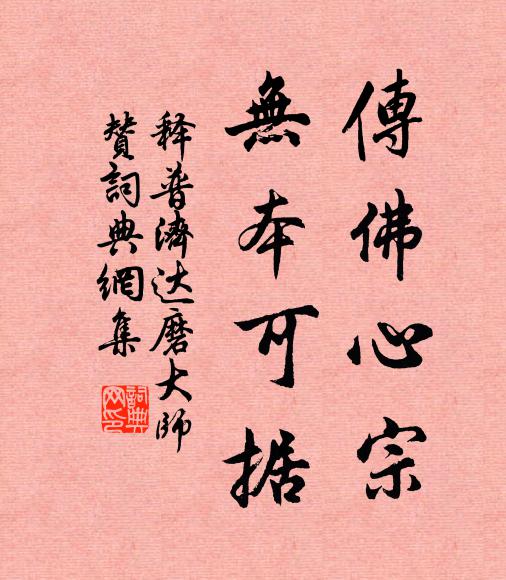 傳佛心宗
無本可据
释普濟达磨大師
贊詞典網集
詞典网印